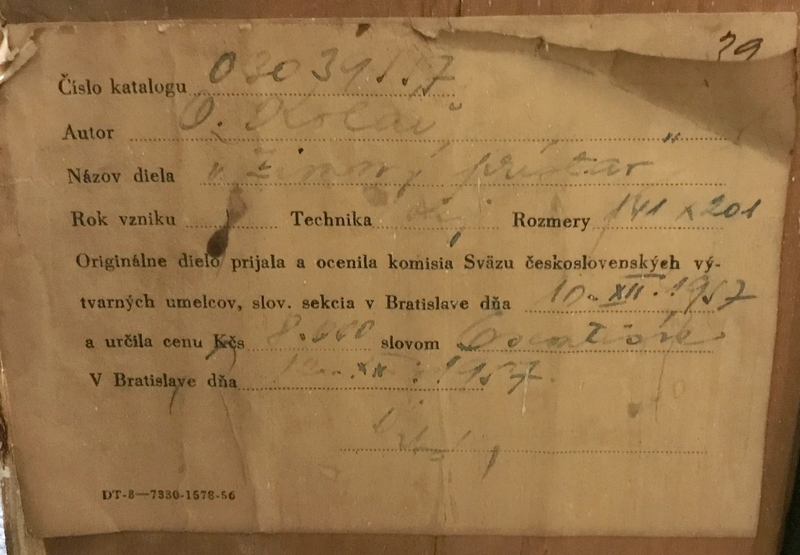 29
Číslo katalogu 0303455/57
Autor O. Kolář
Názov diela „Zimný prístav"
Rok vzniku Technika olej Rozmery 141 x 201
Originálne dielo prijala a ocenila komisia Sväzu československých vý-
tvarných umelcov, slov. sekcia v Bratislave dňa 10. XII. 1957
a určila cenu Kčs 8.000 slovom
V Bratislave dňa XII. 1957.
DT-8—7330-1578-56